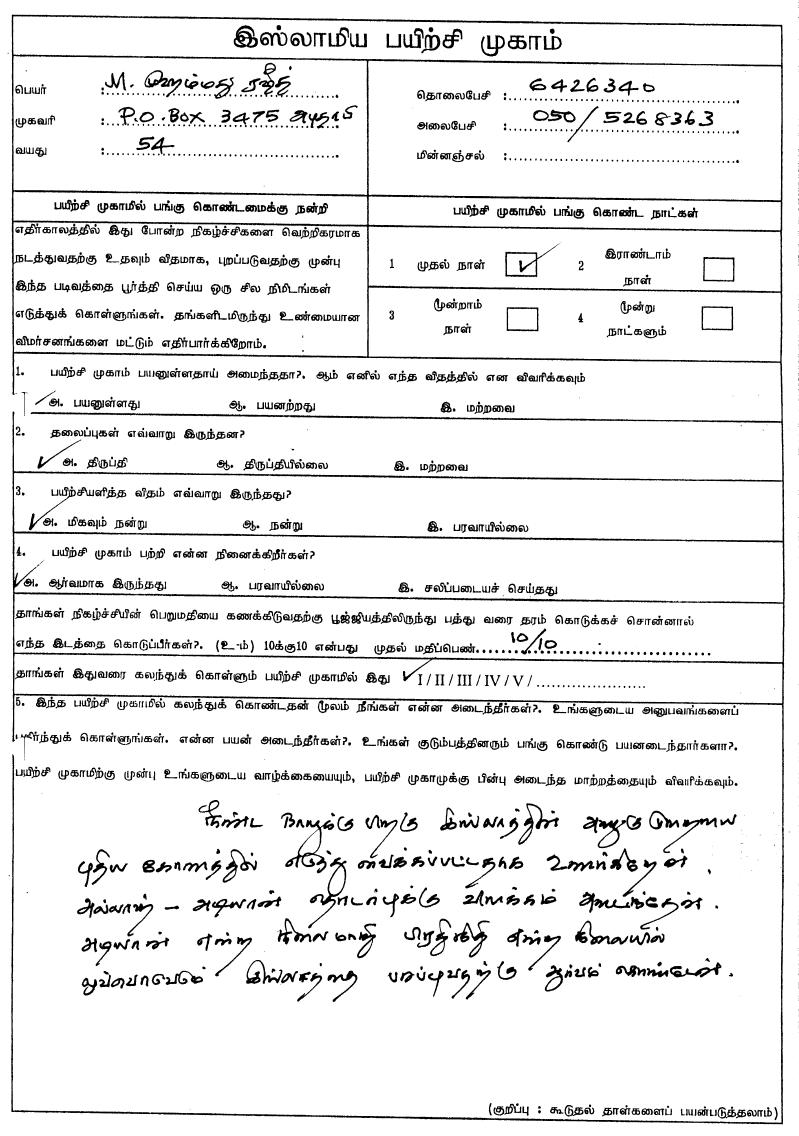 இஸ்லாமிய பயிற்சி முகாம்
பெயர் : M. முஹம்மது ரஷீத்
முகவரி : P.O. Box 3475 அபுதாபி
வயது : 54
தொலைபேசி : 6426340
அலைபேசி : 050/5268363
மின்னஞ்சல் :
பயிற்சி முகாமில் பங்கு கொண்டமைக்கு நன்றி
எதிர்காலத்தில் இது போன்ற நிகழ்ச்சிகளை வெற்றிகரமாக
நடத்துவதற்கு உதவும் விதமாக, புறப்படுவதற்கு முன்பு
இந்த படிவத்தை பூர்த்தி செய்ய ஒரு சில நிமிடங்கள்
எடுத்துக் கொள்ளுங்கள். தங்களிடமிருந்து உண்மையான
விமர்சனங்களை மட்டும் எதிர்பார்க்கிறோம்.
பயிற்சி முகாமில் பங்கு கொண்ட நாட்கள்
1 முதல் நாள் ✓ 2 இராண்டாம்
நாள்
3 மூன்றாம் 4 மூன்று
நாள் நாட்களும்
1. பயிற்சி முகாம் பயனுள்ளதாய் அமைந்ததா?. ஆம் எனில் எந்த விதத்தில் என விவரிக்கவும்
அ. பயனுள்ளது ஆ. பயனற்றது இ. மற்றவை
2. தலைப்புகள் எவ்வாறு இருந்தன?
✓ அ. திருப்தி ஆ. திருப்தியில்லை இ. மற்றவை
3. பயிற்சியளித்த விதம் எவ்வாறு இருந்தது?
✓ அ. மிகவும் நன்று ஆ. நன்று இ. பரவாயில்லை
4. பயிற்சி முகாம் பற்றி என்ன நினைக்கிறீர்கள்?
✓ அ. ஆர்வமாக இருந்தது ஆ. பரவாயில்லை இ. சலிப்படையச் செய்தது
தாங்கள் நிகழ்ச்சியின் பெறுமதியை கணக்கிடுவதற்கு பூஜ்ஜியத்திலிருந்து பத்து வரை தரம் கொடுக்கச் சொன்னால்
எந்த இடத்தை கொடுப்பீர்கள்?. (உ-ம்) 10க்கு10 என்பது முதல் மதிப்பெண். 10/10
தாங்கள் இதுவரை கலந்துக் கொள்ளும் பயிற்சி முகாமில் இது ✓ I / II / III / IV / V /
5. இந்த பயிற்சி முகாமில் கலந்துக் கொண்டதன் மூலம் நீங்கள் என்ன அடைந்தீர்கள்?. உங்களுடைய அனுபவங்களைப்
பகிர்ந்துக் கொள்ளுங்கள். என்ன பயன் அடைந்தீர்கள்?. உங்கள் குடும்பத்தினரும் பங்கு கொண்டு பயனடைந்தார்களா?.
பயிற்சி முகாமிற்கு முன்பு உங்களுடைய வாழ்க்கையையும், பயிற்சி முகாமுக்கு பின்பு அடைந்த மாற்றத்தையும் விவரிக்கவும்.
நீண்ட நாளுக்கு பிறகு இஸ்லாத்தின் அழகு முறையை
புதிய கோணத்தில் எடுத்து வைக்கப்பட்டதாக உணர்கிறேன்.
அல்லாஹ் - அடியான் தொடர்புக்கு விளக்கம் அடைந்தேன்.
அடியான் என்ற நிலை மாறி பிரதிநிதி என்ற நிலையில்
ஒவ்வொருவரும் இஸ்லாத்தை பரப்புவதற்கு ஆர்வம் கொண்டேன்.
(குறிப்பு : கூடுதல் தாள்களைப் பயன்படுத்தலாம்)